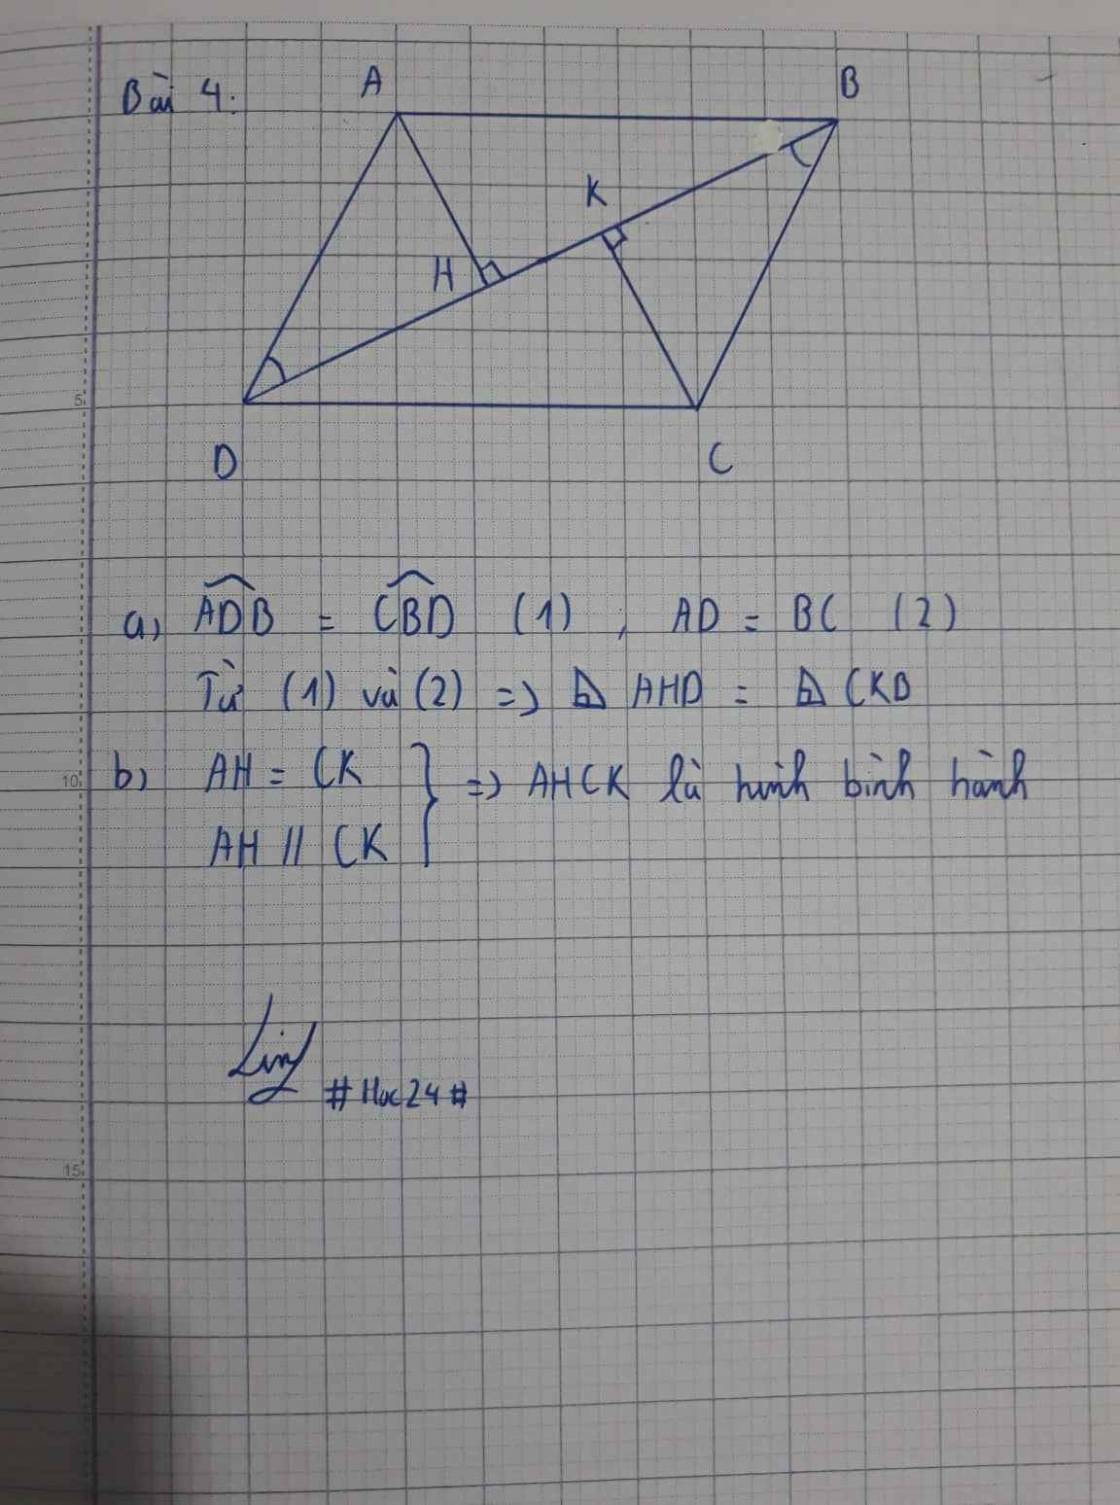 Bài 4:
A
B
K
H
D
C
5
a) ADB = CBD (1) , AD = BC (2)
Từ (1) và (2) => ⊿ AHD = ⊿ CKB
b) AH = CK } => AHCK là hình bình hành
10
AH // CK
Linh
#Hoc24#
15